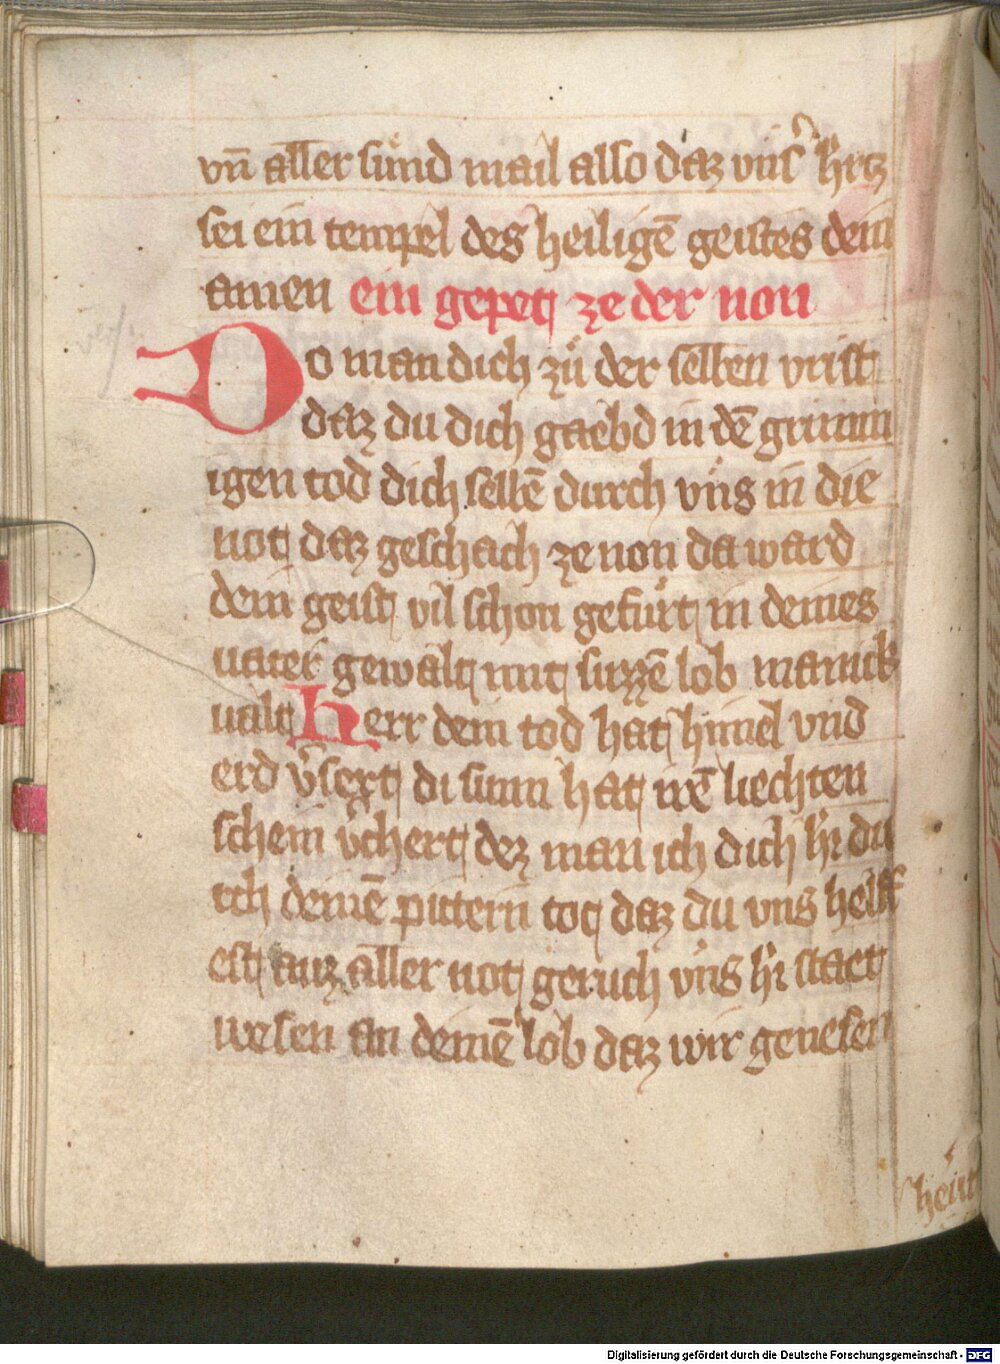 vn̄ aller sünd mail also daz vnſ̉ hͬtz
sei ein tempel des heiligē geistes dein
amen ein gepet ze der non
Do man dich zů der selben vrist
daz du dich gaebd in dē grimm
igen tod dich selbē durch vns in die
not daz geschach ze non da ward
dein geist vil schon gefürt in deines
vater gewalt mit suzzē lob manick
ualt Herr dein tod hat himel vnd
erd v̉sert di sunn hat irē liechten
schein v̉chert dez man ich dich hͬr du
rch deinē pittern tot daz du vns helf
est auz aller not geruch vns hͬr staet
wesen an deinē lob daz wir genesen
heut
Digitalisierung gefördert durch die Deutsche Forschungsgemeinschaft - DFG